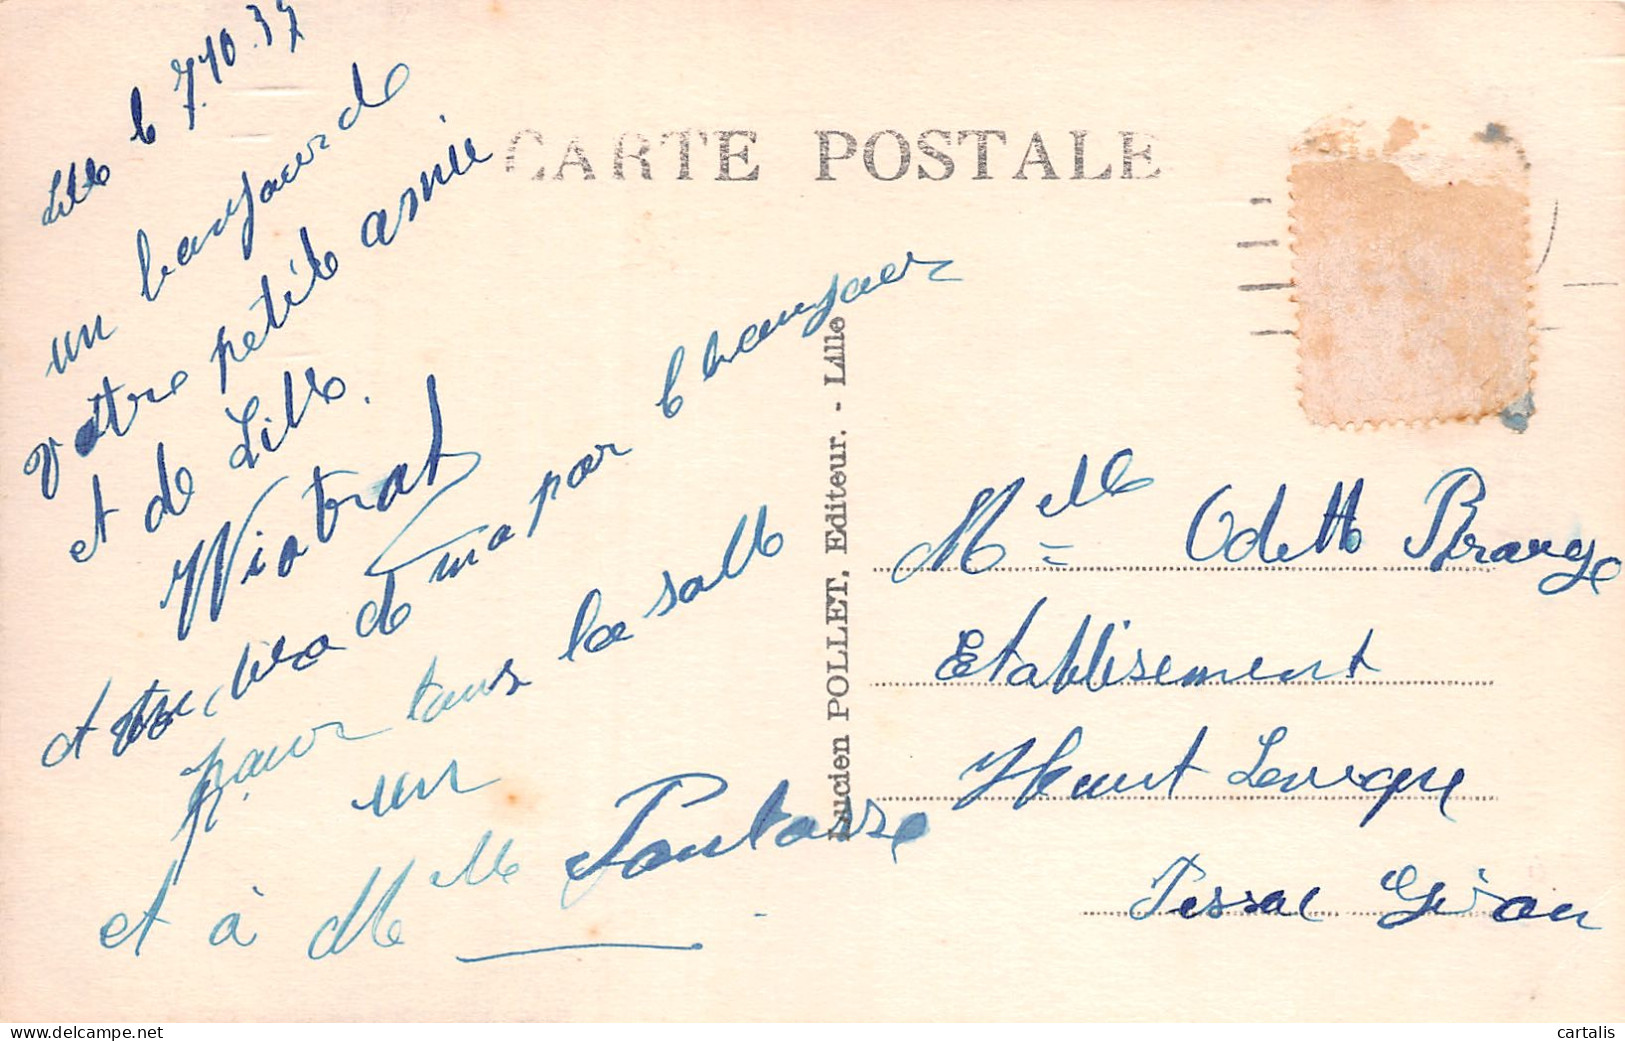 Lille le 7.10.37
un bonjour de
votre petite amie
et de Lille.
Wiotrat
et
de ma par
bonjour
pour tous la salle
un
et à Melle Pontasse
CARTE POSTALE
Lucien POLLET, Editeur. - Lille
Melle Odette Brange
Etablisement
Haut Leveque
Pessac Giron
cartalis